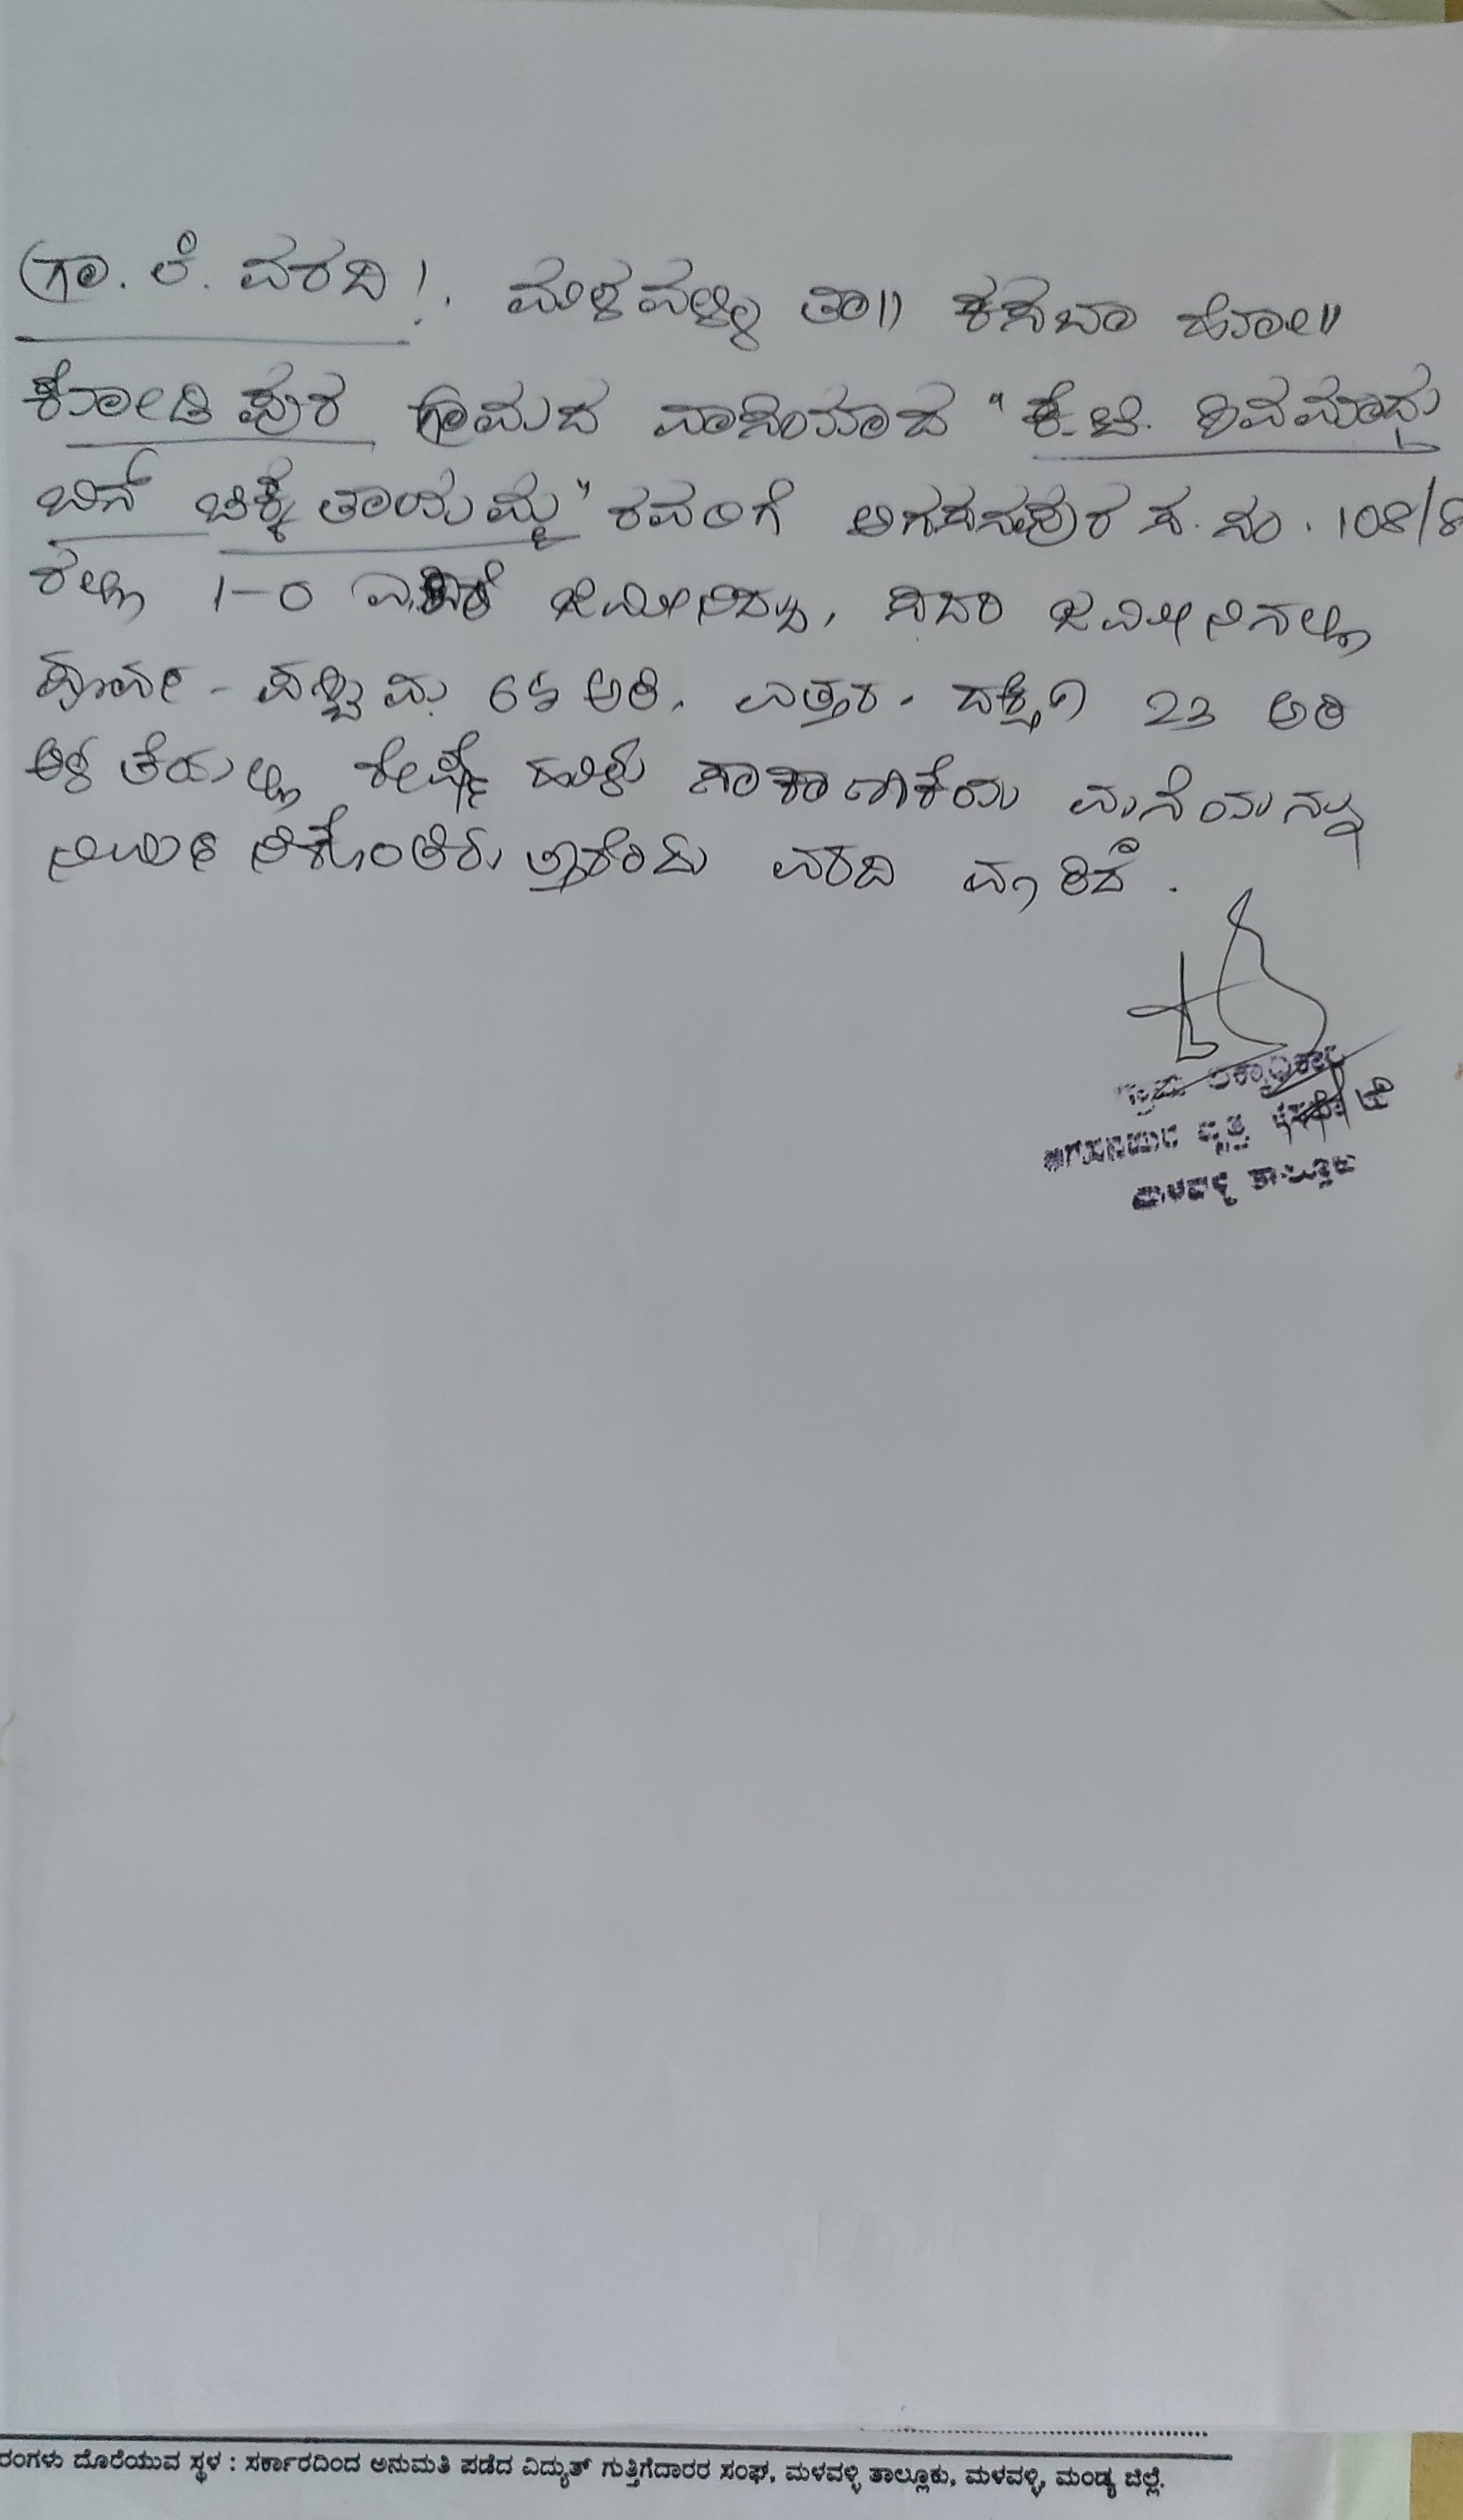 ಗ್ರಾ. ಲೆ. ವರದಿ!. ಮಳವಳ್ಳಿ ತಾ|| ಕಸಬಾ ಹೋ||
ಕೋಡಿಪುರ ಗ್ರಾಮದ ವಾಸಿಯಾದ "ಕೆ.ಟಿ. ಶಿವಮಾದು
ಬಿನ್ ಚಿಕ್ಕತಾಯಮ್ಮ" ರವರಿಗೆ ಅಗಸನಪುರ ಸ.ನಂ. 108/8
ರಲ್ಲಿ 1-0 ಎಕರೆ ಜಮೀನಿದ್ದು, ಸದರಿ ಜಮೀನಿನಲ್ಲಿ
ಪೂರ್ವ - ಪಶ್ಚಿಮ 65 ಅಡಿ. ಉತ್ತರ. ದಕ್ಷಿಣ 23 ಅಡಿ
ಅಳತೆಯಲ್ಲಿ ರೇಷ್ಮೆ ಹುಳು ಸಾಕಾಣಿಕೆಯ ಮನೆಯನ್ನು
ನಿರ್ಮಿಸಿಕೊಂಡಿರುತ್ತಾರೆಂದು ವರದಿ ಮಾಡಿದೆ.
ಗ್ರಾಮ ಲೆಕ್ಕಾಧಿಕಾರಿ
ಅಗಸನಪುರ ವೃತ್ತ
ಮಳವಳ್ಳಿ ತಾಲ್ಲೂಕು
ರಂಗಳು ದೊರೆಯುವ ಸ್ಥಳ : ಸರ್ಕಾರದಿಂದ ಅನುಮತಿ ಪಡೆದ ವಿದ್ಯುತ್ ಗುತ್ತಿಗೆದಾರರ ಸಂಘ, ಮಳವಳ್ಳಿ ತಾಲ್ಲೂಕು, ಮಳವಳ್ಳಿ, ಮಂಡ್ಯ ಜಿಲ್ಲೆ.